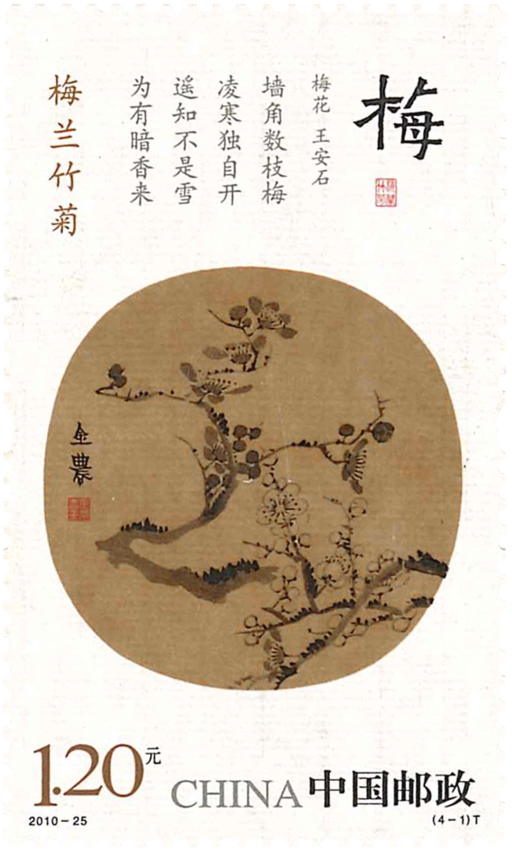 梅
梅花 王安石
墙角数枝梅
凌寒独自开
遥知不是雪
为有暗香来
梅兰竹菊
金農
1.20元
CHINA 中国邮政
2010-25
(4-1)T